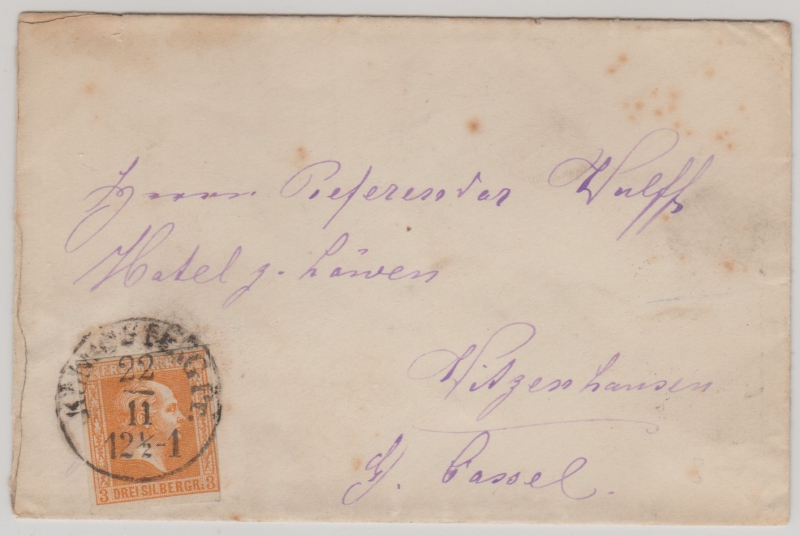 Herrn Referendar Wulff
Hotel z. Löwen
Witzenhausen
Cassel.
22
11
12½-1
3 DREI SILBERGR. 3